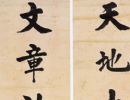 天地
文章